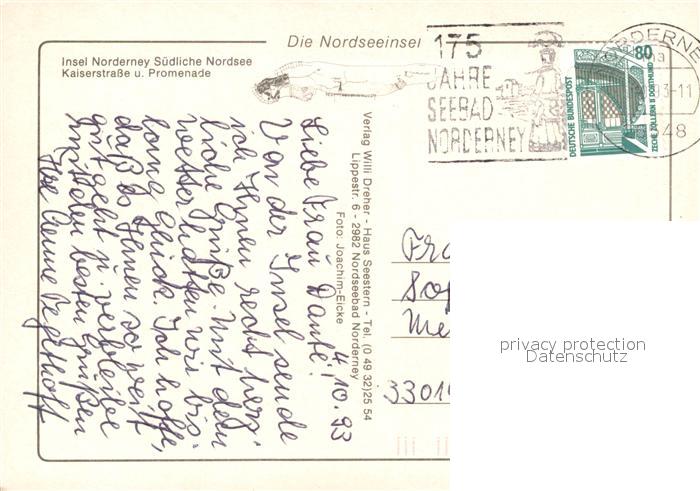 Die Nordseeinsel
Insel Norderney Südliche Nordsee
Kaiserstraße u. Promenade
175
JAHRE
SEEBAD
NORDERNEY
NORDERNE
80
DEUTSCHE BUNDESPOST
ZECHE ZOLLERN II DORTMUND
93-11
48
4.10.93
Liebe Frau Dante!
Von der Insel sende
ich Ihnen recht herz-
liche Grüße. Mit dem
Wetter hatten wir bis-
lang Glück. Ich hoffe,
daß es Ihnen so weit
gut geht u. verbleibe
mit den besten Grüßen
Ihre
Verlag Willi Dreher - Haus Seestern - Tel. (0 49 32)25 54
Lippestr. 6 - 2982 Nordseebad Norderney
Foto: Joachim-Eicke
Fra
Sop
Me
3301
privacy protection
Datenschutz